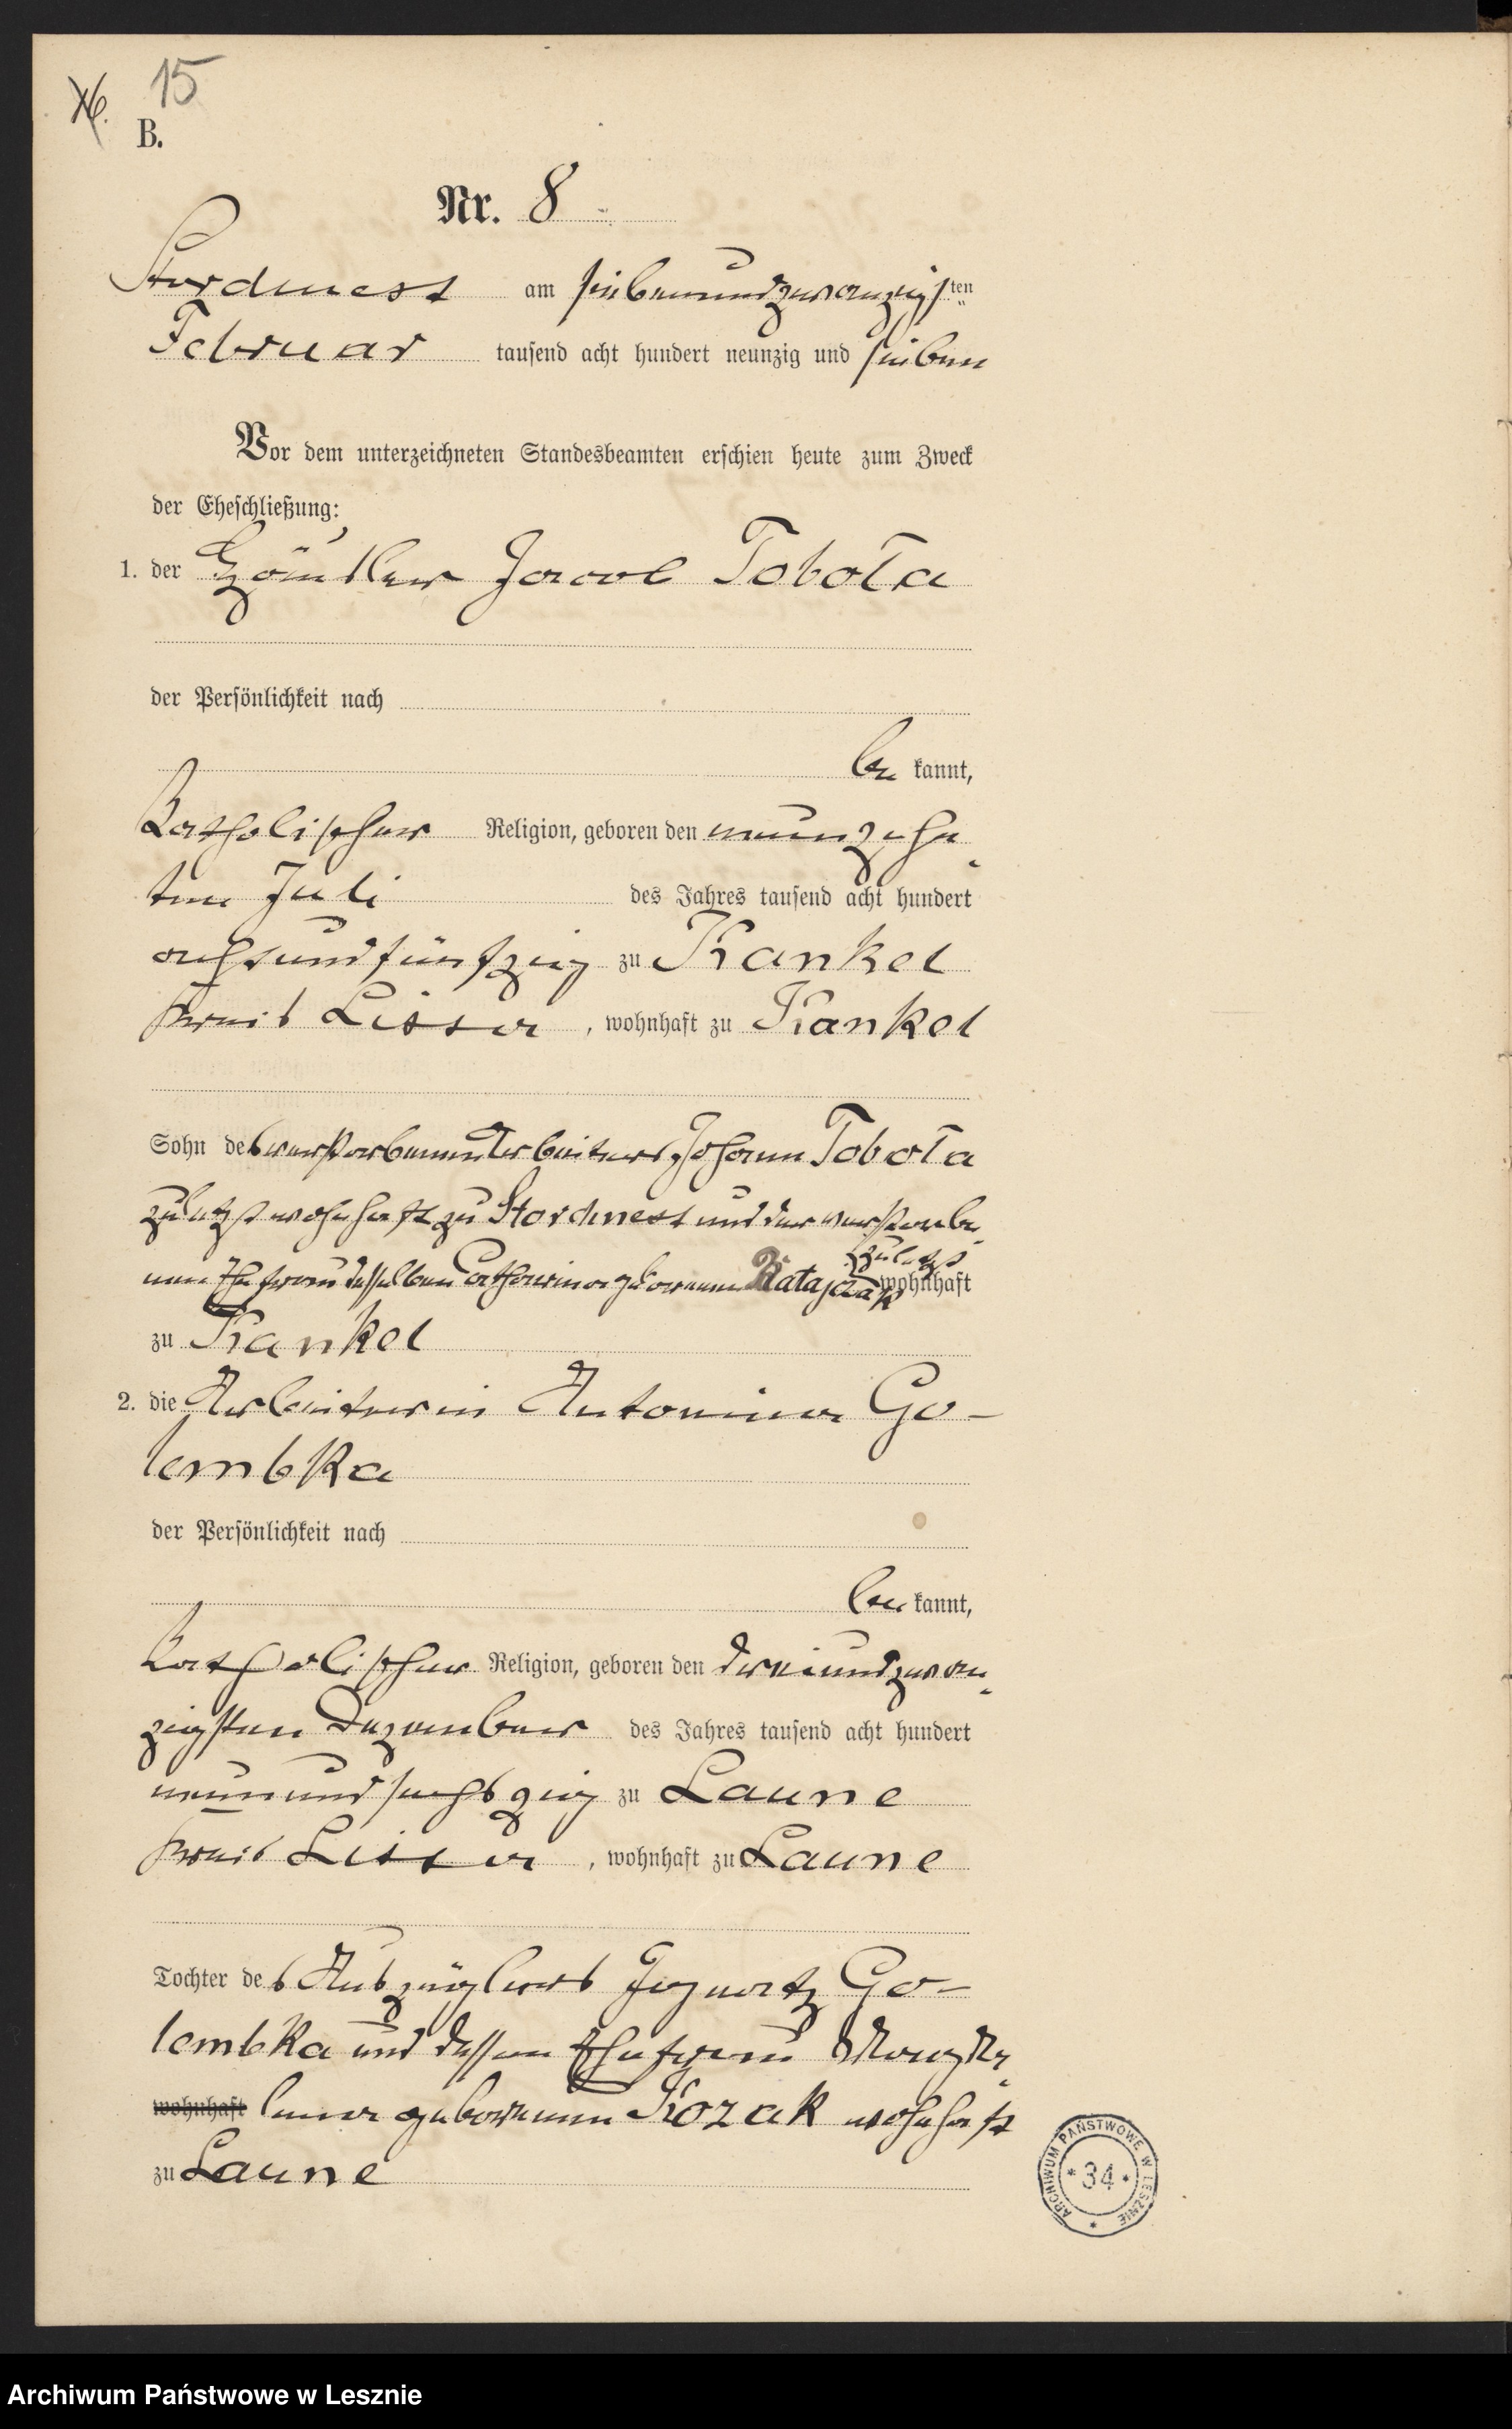 15
B.
Nr. 8
Storchnest am siebenundzwanzigsten
Februar tausend acht hundert neunzig und sieben
Vor dem unterzeichneten Standesbeamten erschien heute zum Zweck
der Eheschließung:
1. der Häusler Jacob Tobola
der Persönlichkeit nach
be kannt,
katholischer Religion, geboren den neunzehn
ten Juli des Jahres tausend acht hundert
achtundfünfzig zu Kankel
Kreis Lissa, wohnhaft zu Kankel
Sohn des verstorbenen Arbeiters Johann Tobola
zuletzt wohnhaft zu Storchnest und der verstorbe
zuletzt
nen Ehefrau desselben Catharina geborenen Ratajczak wohnhaft
zu Kankel
2. die Arbeiterin Antonina Go-
lembka
der Persönlichkeit nach
be kannt,
katholischer Religion, geboren den dreiundzwan
zigsten Dezember des Jahres tausend acht hundert
neunundsechszig zu Laune
Kreis Lissa, wohnhaft zu Laune
Tochter des Auszüglers Ignatz Go-
lembka und dessen Ehefrau Magda
wohnhaft lena geborenen Kozak wohnhaft
zu Laune
ARCHIWUM PAŃSTWOWE W LESZNIE
* 34 *
Archiwum Państwowe w Lesznie